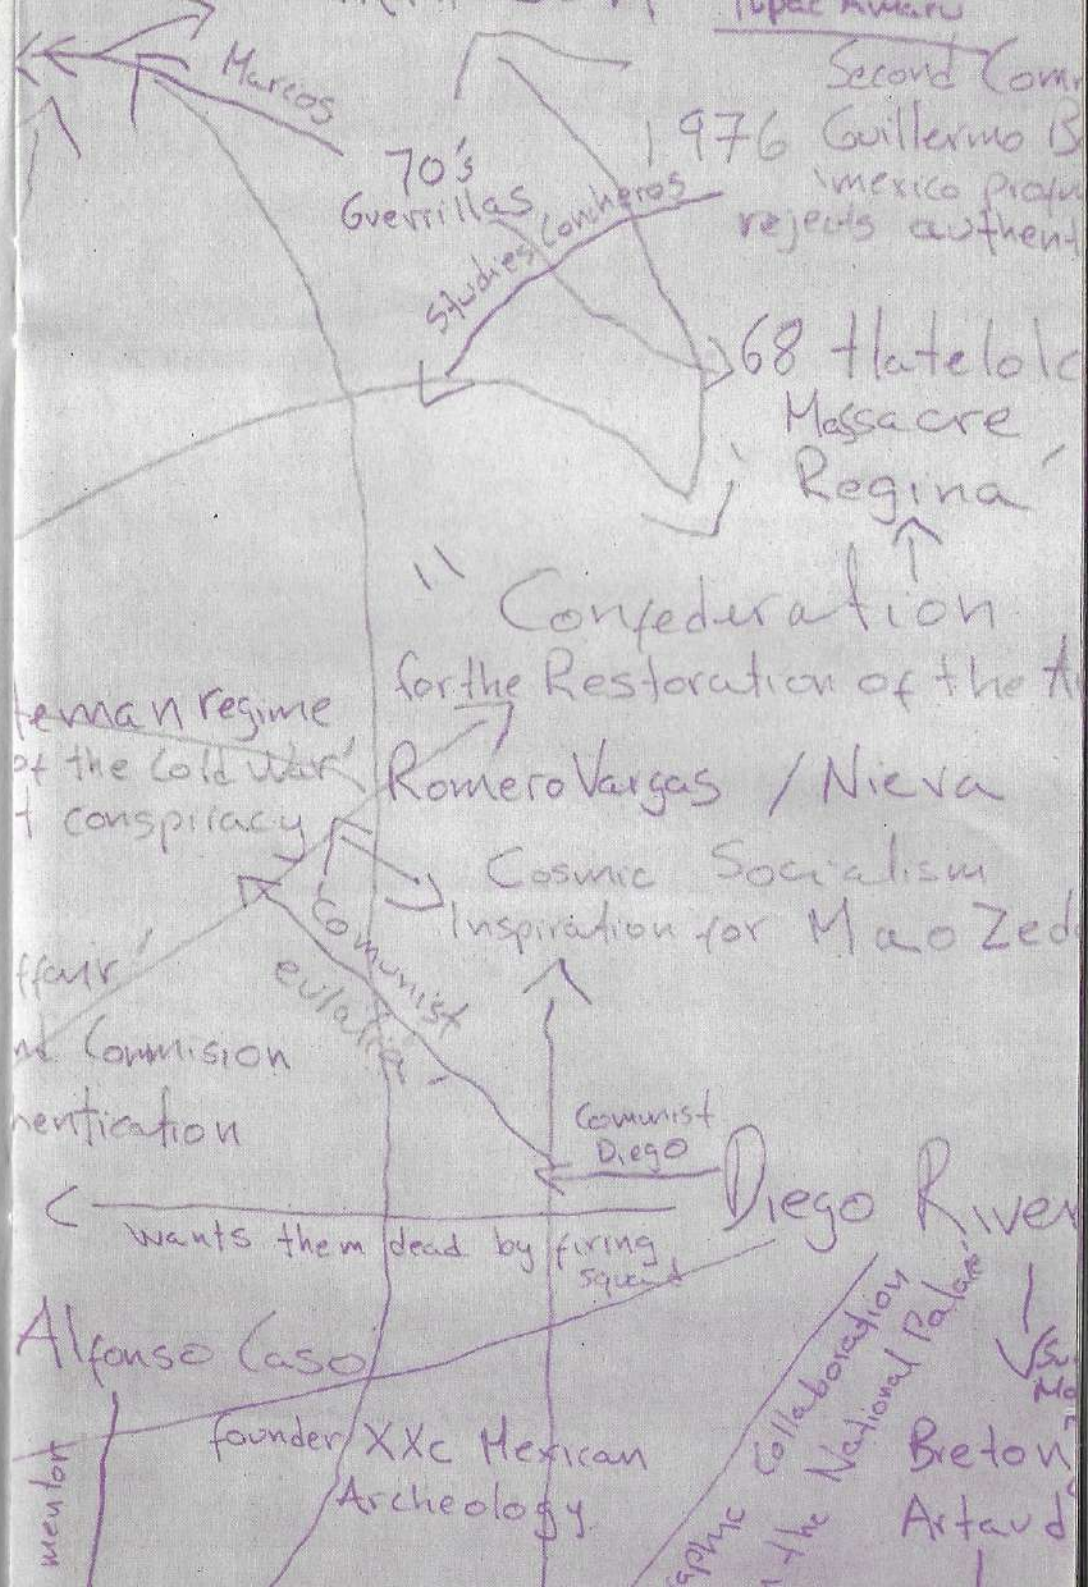 Tupac Amaru
Marcos
Second Com
1976 Guillermo B
70's
Guerrillas
mexico profu
rejects authent
Studies Concheros
68 tlatelolc
Massacre
Regina
Confederation
for the Restoration of the A
teman regime
of the Cold War
t conspiracy
Romero Vargas / Nieva
Cosmic Socialism
Inspiration for Mao Zed
Comunist
eulalia
ffair
Commision
hentication
Comunist
Diego
Diego River
wants them dead by firing
squad
Alfonso Caso
founder XXc Mexican
Archeology
mentor
aphic Collaboration
the National Palace
Breton
Artaud